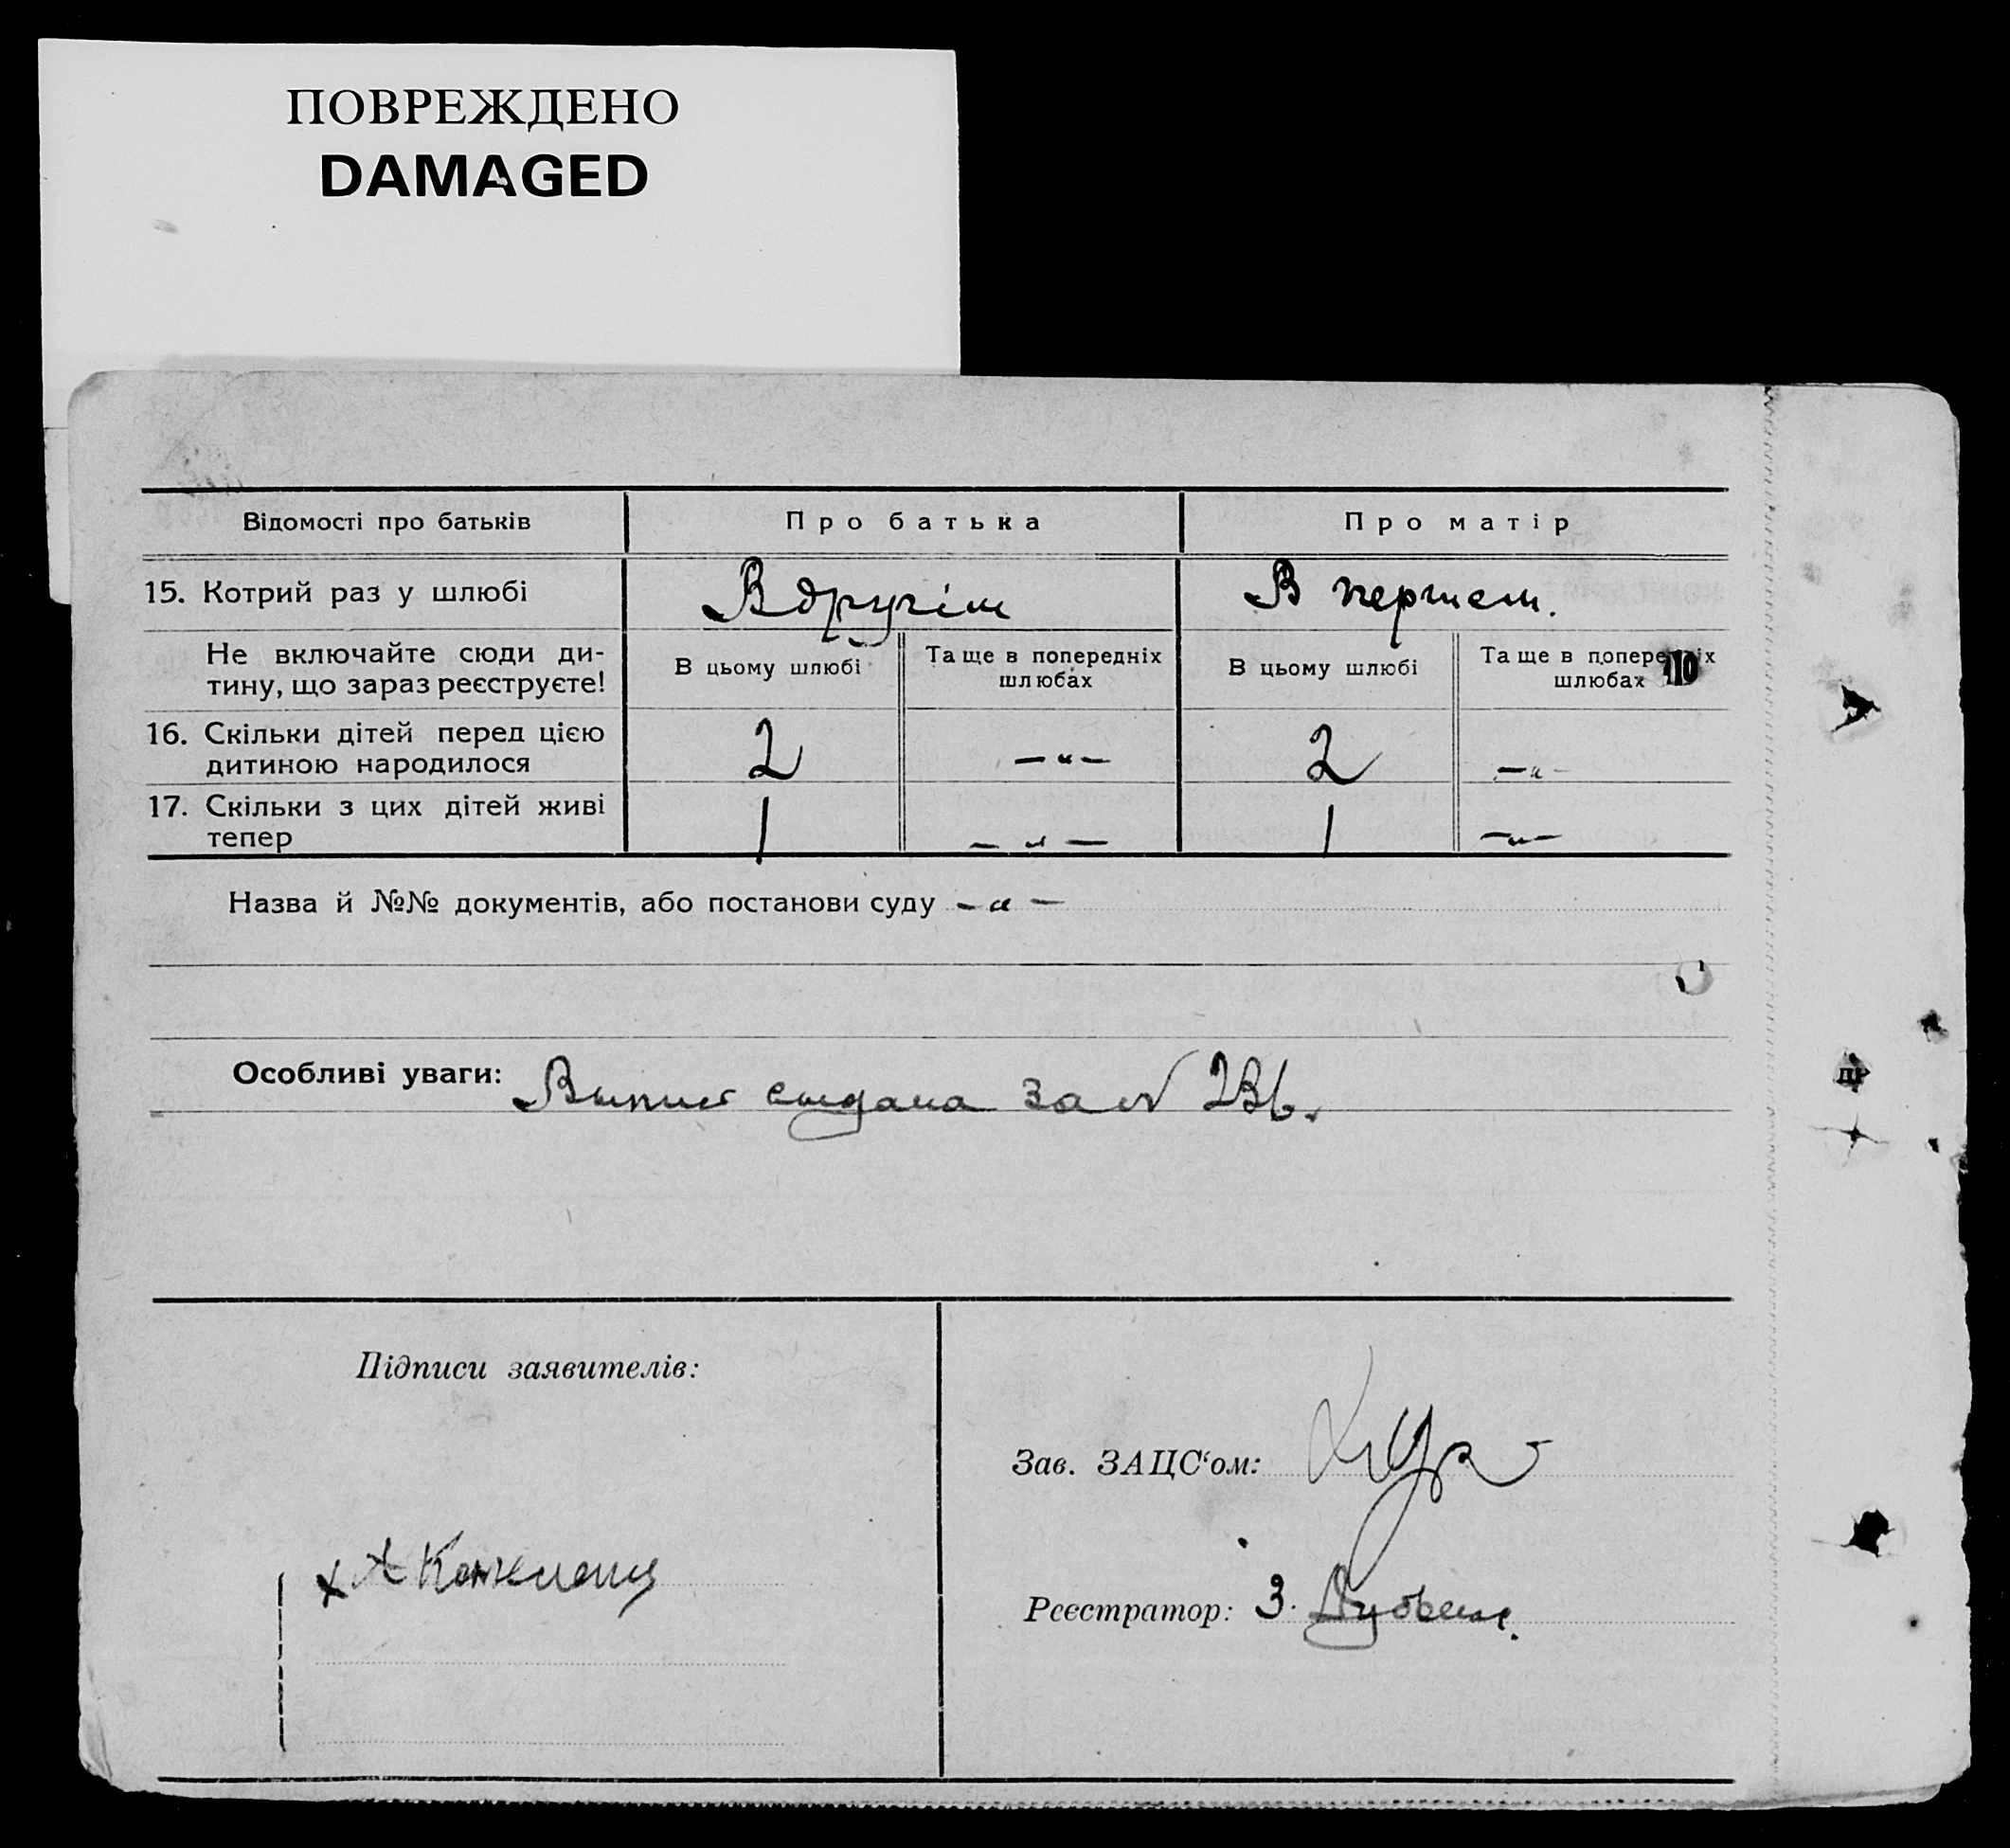 ПОВРЕЖДЕНО
DAMAGED
Відомості про батьків
Про батька
Про матір
15. Котрий раз у шлюбі
В другім
В першем.
Не включайте сюди ди-
тину, що зараз реєструєте!
В цьому шлюбі
Та ще в попередніх
шлюбах
В цьому шлюбі
Та ще в попередніх
шлюбах
110
16. Скільки дітей перед цією
дитиною народилося
2
—"—
2
—"—
17. Скільки з цих дітей живі
тепер
1
—"—
1
—"—
Назва й №№ документів, або постанови суду —"—
Особливі уваги: за № 236.
Підписи заявителів:
Зав. ЗАЦС‘ом:
Реєстратор: З.